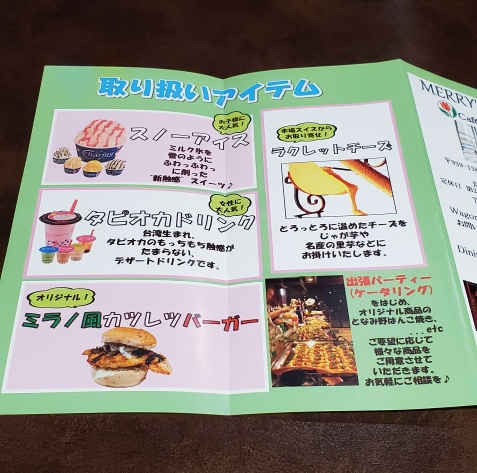 取り扱いアイテム
お子様に
大人気！
スノーアイス
ミルク氷を
雪のように
ふわっふわっ
に削った
"新触感"スイーツ♪
Charmy
女性に
大人気！
タピオカドリンク
台湾生まれ、
タピオカのもっちもち触感が
たまらない、
デザートドリンクです。
オリジナル！
ミラノ風カツレツバーガー
本場スイスから
お取り寄せ！
ラクレットチーズ
とろっとろに温めたチーズを
じゃが芋や
名産の里芋などに
お掛けいたします。
出張パーティー
(ケータリング)
をはじめ、
オリジナル商品の
となみ野はんこ焼き、
...etc
ご要望に応じて
様々な商品を
ご用意させて
いただきます。
お気軽にご相談を♪
MERRY'
Café
〒939-13
定休日 第2
Wagon
お問い
Dinin